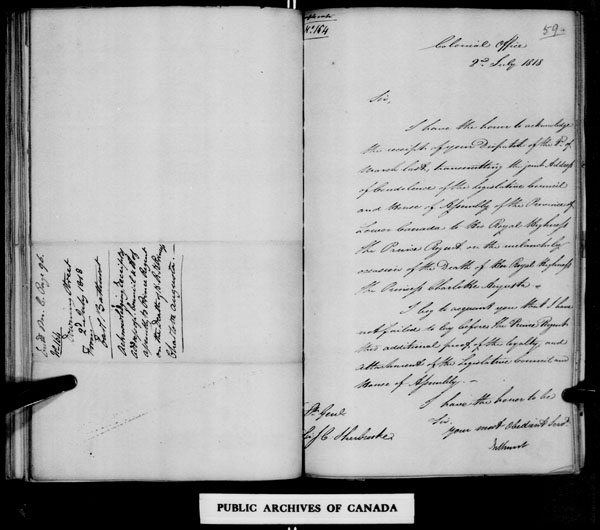 Nº 164
59
Colonial Office
2d July 1818
Sir,
I have the honor to acknowledge
the receipt of your Dispatch of the of
March last, transmitting the joint Address
of Condolence of the Legislative Council
and House of Assembly of the Province of
Lower Canada to His Royal Highness
The Prince Regent on the melancholy
occasion of the Death of Her Royal Highness
The Princess Charlotte Augusta –
I beg to acquaint you that I have
not failed to lay before The Prince Regent
this additional proof of the loyalty and
attachment of the Legislative Council and
House of Assembly –
I have the honor to be
Sir
your most obedient Servt
Bathurst
Genl
Sir J C Sherbrooke
Downing Street
2d July 1818
From
Earl Bathurst
Acknowledging receipt of
address of Council & Hs of
Assembly to Prince Regent
on the Death of Princess
Charlotte Augusta –
PUBLIC ARCHIVES OF CANADA